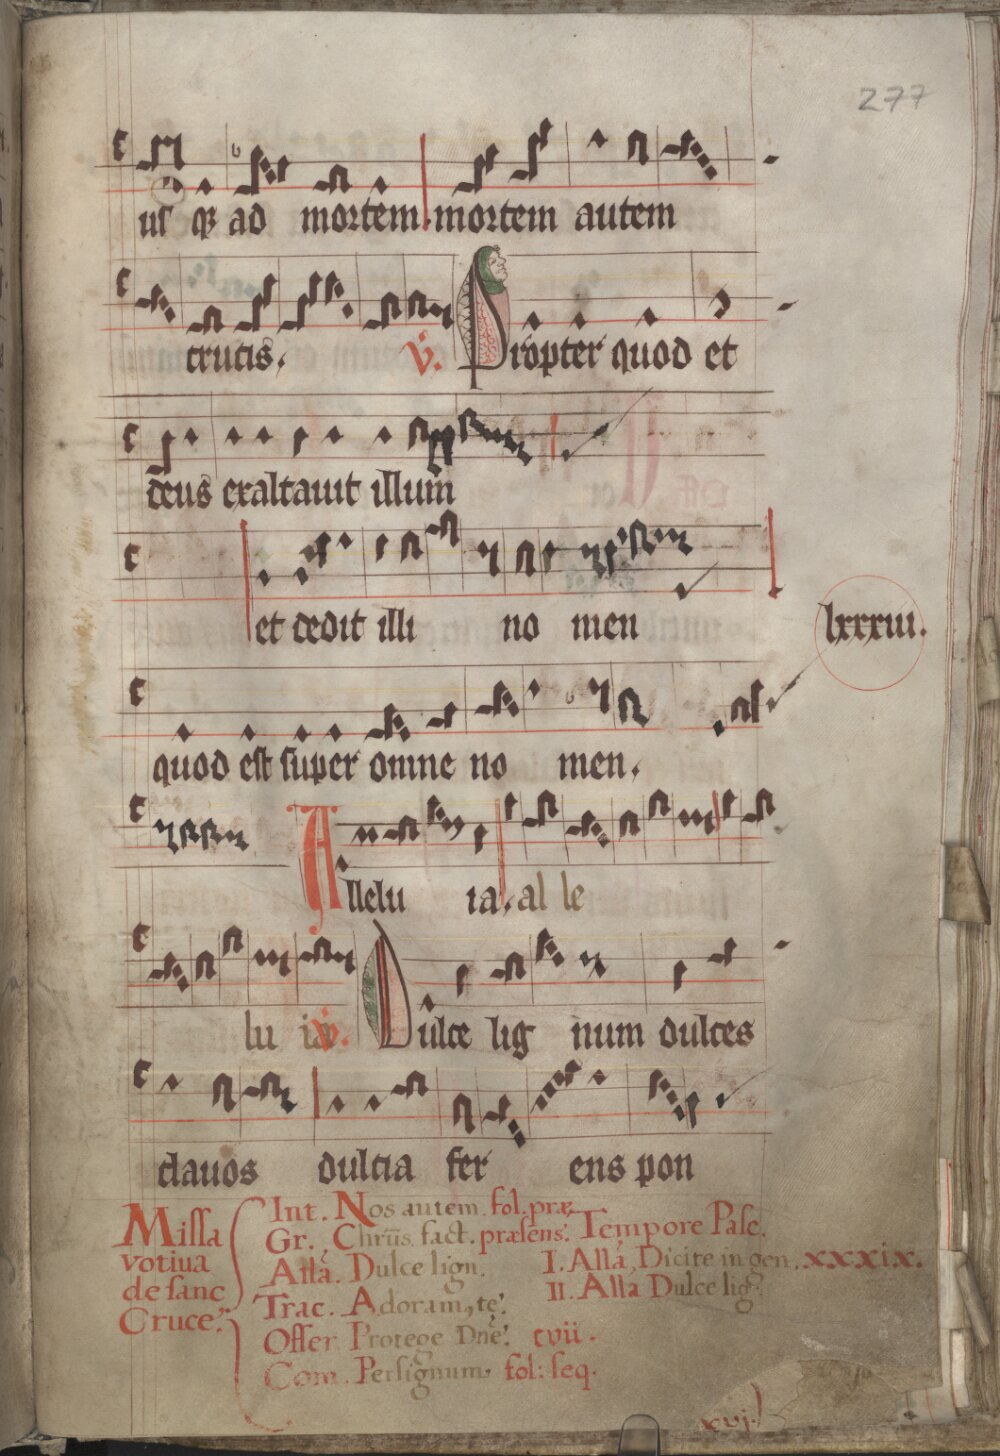 277
us qȝ ad mortem. mortem autem
crucis. v̇. Propter quod et
deus exaltauit illum
et dedit illi no men
lxxxiii.
quod est super omne no men.
Allelu ia. al le
lu ia v̇. Dulce lig num dulces
clauos dulcia fer ens pon
Missa votiua de sanc Cruce.
Int. Nos autem. fol. præ.
Gr. Chrūs. fact. præsens.
Allā. Dulce lign.
Trac. Adoram, te.
Offer Protege Dnē. cvii.
Com. Per signum. fol: seq.
Tempore Pasc.
I. Allā, Dicite in gen. xxxix.
II. Allā Dulce lig.
xvj.